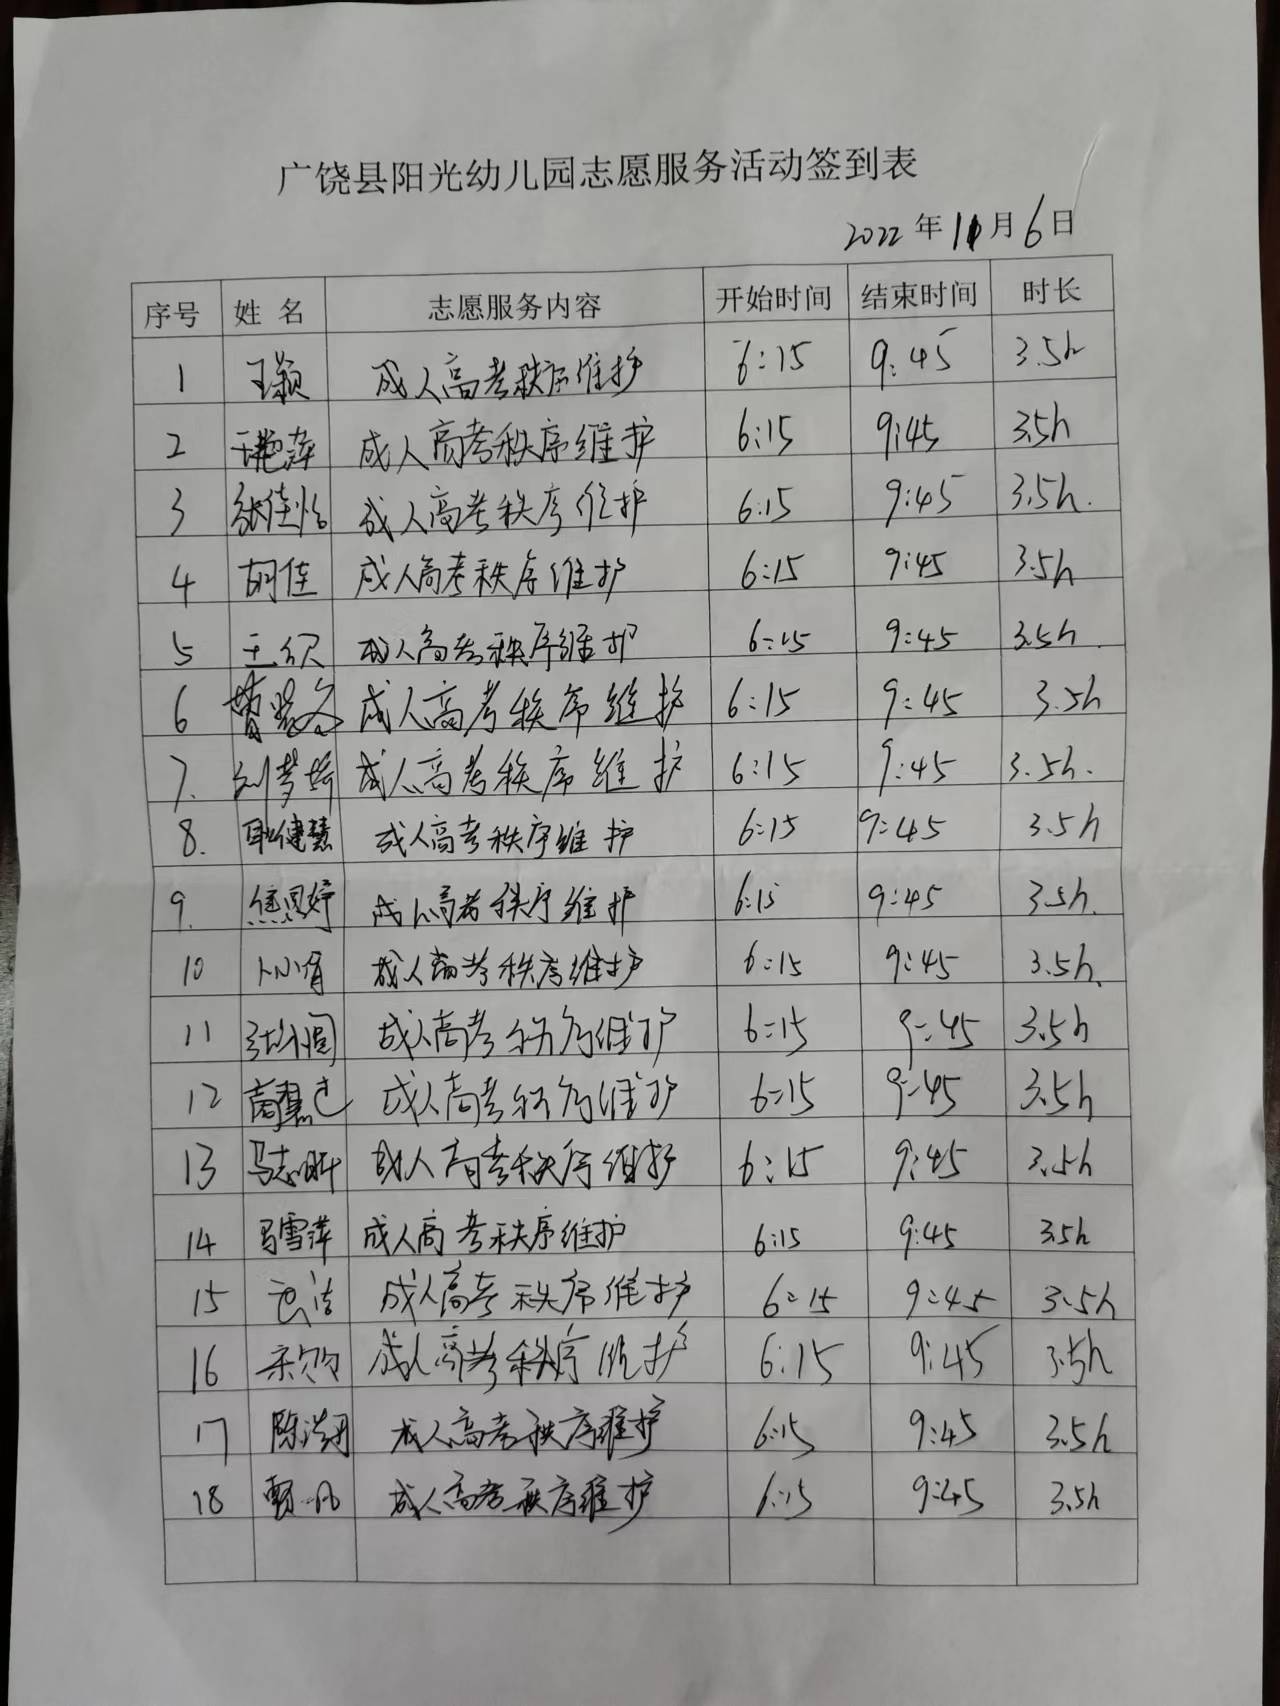 广饶县阳光幼儿园志愿服务活动签到表
2022 年 11 月 6 日
序号 姓 名 志愿服务内容 开始时间 结束时间 时长
1 王颖 成人高考秩序维护 6:15 9:45 3.5h
2 成人高考秩序维护 6:15 9:45 3.5h
3 张佳怡 成人高考秩序维护 6:15 9:45 3.5h.
4 胡佳 成人高考秩序维护 6:15 9:45 3.5h
5 成人高考秩序维护 6:15 9:45 3.5h
6 成人高考秩序维护 6:15 9:45 3.5h
7. 刘梦琦 成人高考秩序维护 6:15 9:45 3.5h.
8. 耿健慧 成人高考秩序维护 6:15 9:45 3.5h
9. 成人高考秩序维护 6:15 9:45 3.5h.
10 成人高考秩序维护 6:15 9:45 3.5h.
11 张小圆 成人高考秩序维护 6:15 9:45 3.5h
12 成人高考秩序维护 6:15 9:45 3.5h
13 马志昕 成人高考秩序维护 6:15 9:45 3.5h
14 马雪萍 成人高考秩序维护 6:15 9:45 3.5h
15 成人高考秩序维护 6:15 9:45 3.5h
16 成人高考秩序维护 6:15 9:45 3.5h
17 成人高考秩序维护 6:15 9:45 3.5h
18 成人高考秩序维护 6:15 9:45 3.5h